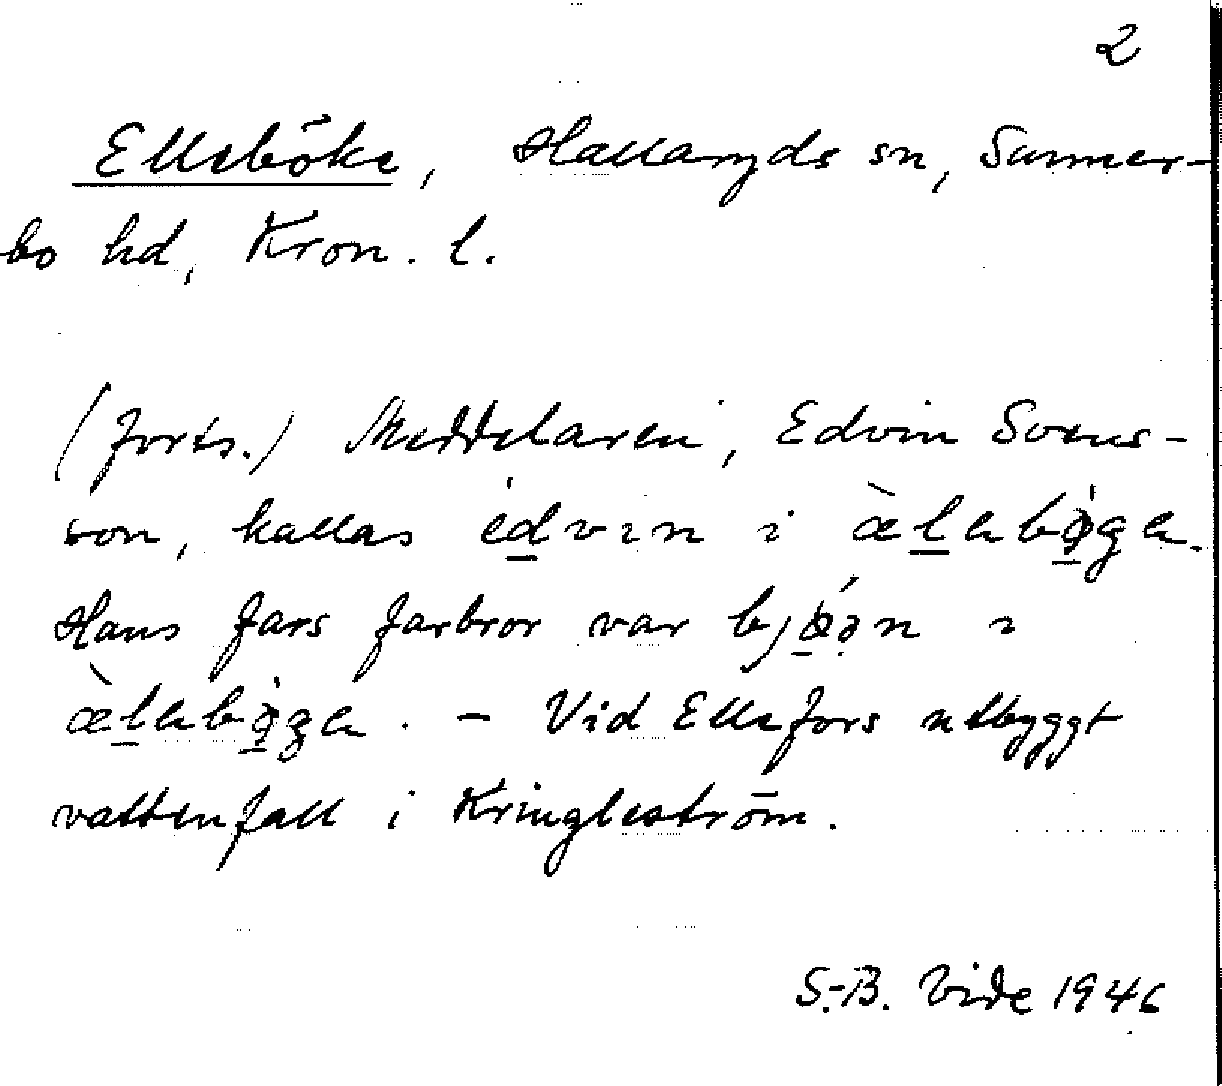 2
Elleböke, Hallaryds sn, Sunner-
bo hd, Kron. l.
(forts.) Meddelaren, Edvin Svens-
son, kallas édvın i
Hans fars farbror var
. – Vid Ellefors utbyggt
vattenfall i Kringleström.
S.-B. Vide 1946